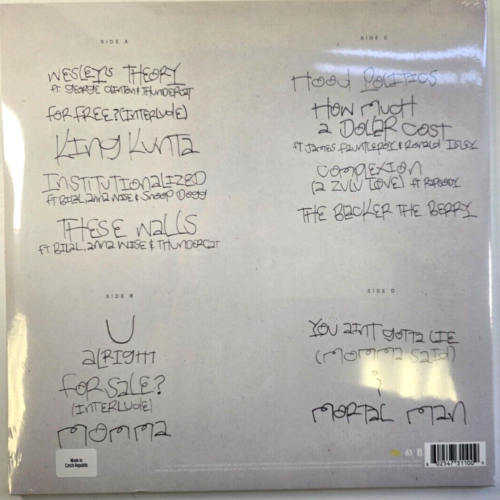 SIDE A
WESLEY'S THEORY
ft GEORGE CLINTON & THUNDERCAT
FOR FREE? (INTERLUDE)
King Kunta
INSTITUTIONALIZED
ft BILAL, anna WISE & Snoop Dogg
THESE Walls
ft BILAL, anna WISE & THUNDERCAT
SIDE B
U
alRIGHT
FOR SALE?
(INTERLUDE)
MOMMA
SIDE C
HOOD POLITICS
HOW MUCH
a DOLLAR COST
ft JAMES FAUNTLEROY & RONALD ISLEY
COMPLEXION
(a ZULU LOVE) ft RAPSODY
THE BLACKER THE BERRY
SIDE D
YOU AINT GOTTA LIE
(MOMMA SAID)
i
MORTAL MAN
Made in
Czech Republic
02547 31100